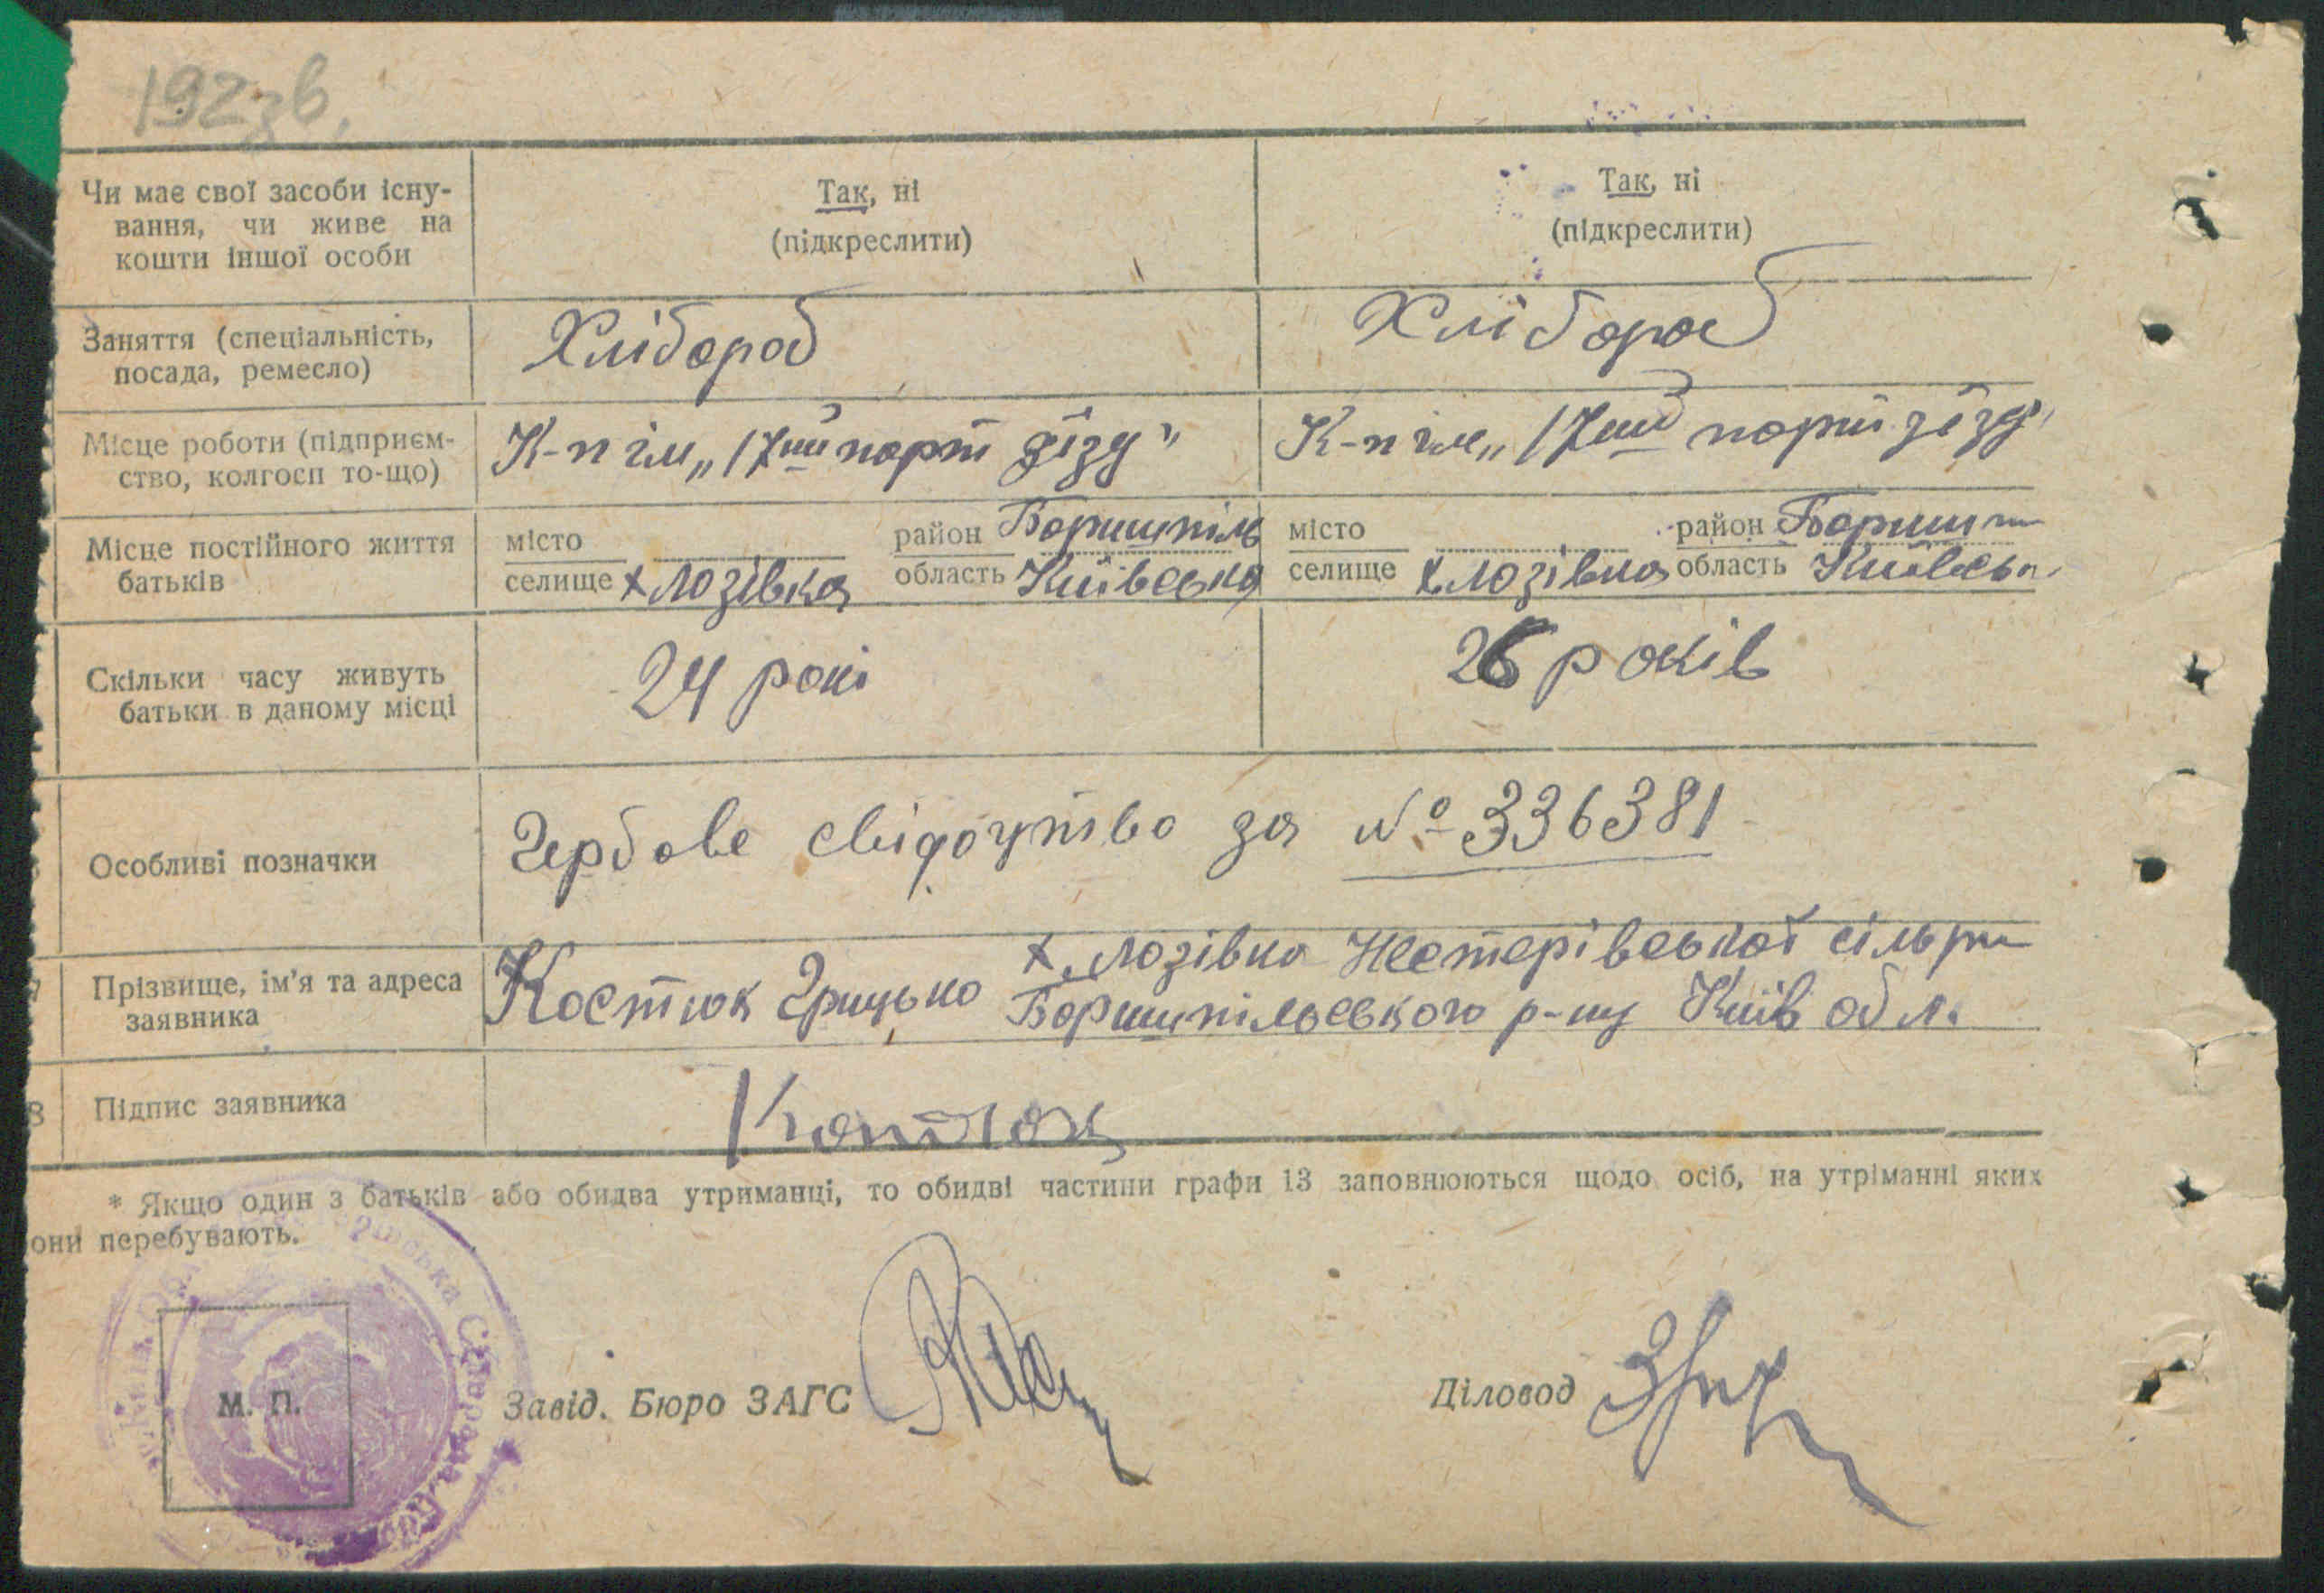 192зв.
Чи має свої засоби існу-
вання, чи живе на
кошти іншої особи
Так, ні
(підкреслити)
Так, ні
(підкреслити)
Заняття (спеціальність,
посада, ремесло)
Хлібороб
Хлібороб
Місце роботи (підприєм-
ство, колгосп то-що)
К-п ім „17ий парт зїзд"
К-п ім„ 17ий парт зїзд"
Місце постійного життя
батьків
місто
селище х Лозівка
район Боришпіль
область Київська
місто
селище х. Лозівка
район Боришп
область Київськ.
Скільки часу живуть
батьки в даному місці
24 рокі
26 років
Особливі позначки
Гербове свідоцтво за № 336381
7 Прізвище, ім'я та адреса
заявника
Костюк Грицько
х. Лозівка Нестерівської сільр
Боришпільського р-ну Київ обл.
8 Підпис заявника
Костюк
* Якщо один з батьків або обидва утриманці, то обидві частини графи 13 заповнюються щодо осіб, на утріманні яких
они перебувають.
М. П.
Завід. Бюро ЗАГС
Діловод